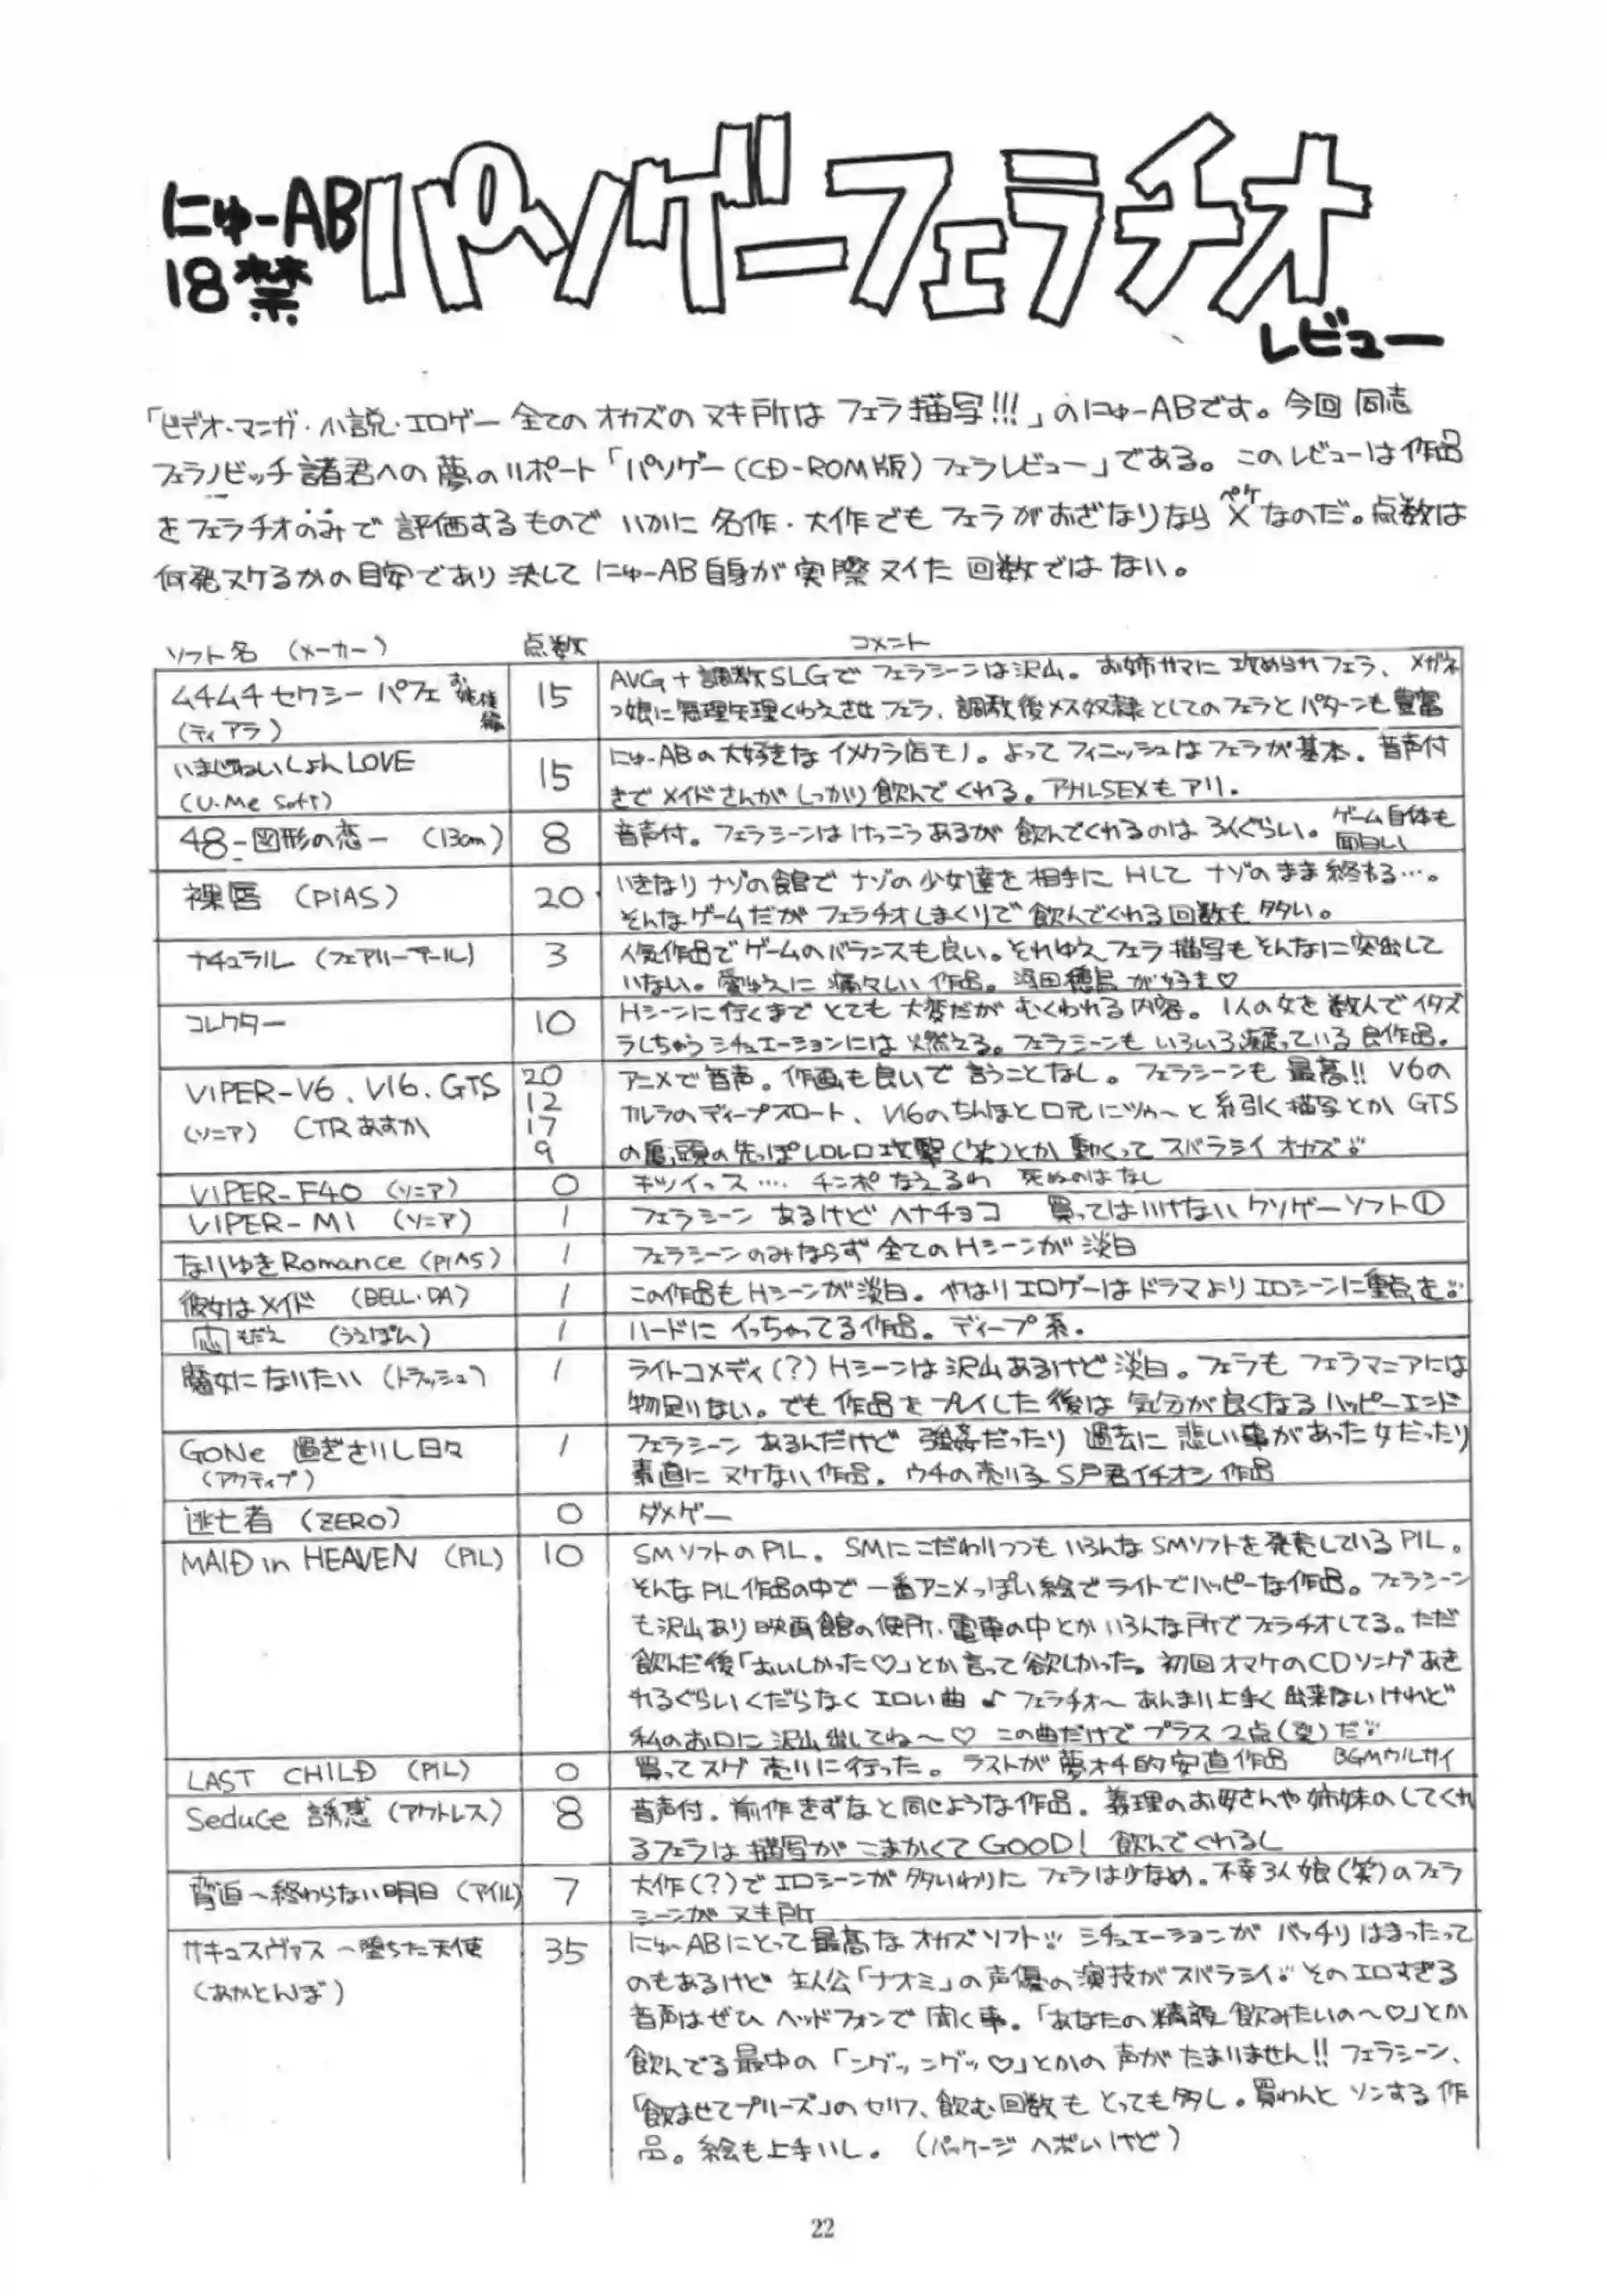 にゅーAB
18禁
パソゲーフェラチオ
レビュー
「ビデオ・マンガ・小説・エロゲー 全てのオカズのヌキ所は フェラ描写!!!」のにゅーABです。今回 同志
フェラノビッチ諸君への夢のリポート「パソゲー(CD-ROM版)フェラレビュー」である。このレビューは作品
をフェラチオのみで評価するもので いかに 名作・大作でも フェラがおざなりなら ×なのだ。点数は
ペケ
何発ヌケるかの目安であり 決して にゅーAB自身が実際ヌイた 回数ではない。
ソフト名 (メーカー) 点数 コメント
ムチムチセクシーパフェ
(ティアラ)
15
AVG+調教SLGで フェラシーンは沢山。お姉サマに 攻められフェラ、メガネ
っ娘に無理矢理くわえさせ フェラ、調教後メス奴隷としてのフェラとパターンも豊富
いまじねいしょんLOVE
(U・Me Soft)
15
にゅーABの大好きな イメクラ店モノ。よって フィニッシュは フェラが基本。音声付
きで メイドさんが しっかり飲んでくれる。アナルSEXもアリ。
48-図形の恋- (13cm)
8
音声付。フェラシーンは けっこうあるが 飲んでくれるのは 3人ぐらい。 ゲーム自体も
面白い
裸唇 (PIAS)
20
いきなり ナゾの館で ナゾの少女達を相手に Hして ナゾのまま終わる…。
そんなゲームだが フェラチオしまくりで 飲んでくれる回数も多い。
ナチュラル (フェアリーテール)
3
人気作品で ゲームのバランスも良い。それゆえ フェラ描写もそんなに突出して
いない。愛ゆえに 痛々しい 作品。 が好き♡
コレクター
10
Hシーンに行くまで とても大変だが むくわれる内容。1人の女を数人でイタズ
ラしちゃうシチュエーションには 燃える。フェラシーンも いろいろ凝っている 良作品。
VIPER-V6、V16、GTS
(ソニア) CTRあすか
20
12
17
9
アニメで音声。作画も良いで 言うことなし。フェラシーンも 最高!! V6の
カルラのディープスロート、V16のちんぽと口元にツゥ～と糸引く描写とか GTS
の亀頭の先っぽレロレロ攻撃(笑)とか 動くって スバラシイ オカズ!!
VIPER-F40 (ソニア)
0
キツイっス…. チンポなえるわ 死ぬのはなし
VIPER-M1 (ソニア)
1
フェラシーン あるけど ヘナチョコ 買ってはいけない クソゲーソフト①
なりゆきRomance (PIAS)
1
フェラシーンのみならず 全てのHシーンが 淡白
彼女はメイド (BELL・DA)
1
この作品も Hシーンが淡白。やはり エロゲーは ドラマより エロシーンに重点を!!
もだえ (うえぽん)
1
ハードに イっちゃってる作品。ディープ系。
魔女になりたい (トラッシュ)
1
ライトコメディ(?) Hシーンは沢山あるけど 淡白。フェラも フェラマニアには
物足りない。でも 作品をプレイした後は 気分が良くなる ハッピーエンド
GONe 過ぎさりし日々
(アクティブ)
1
フェラシーン あるんだけど 強姦だったり 過去に 悲しい事があった女だったり
素直に ヌケない 作品。ウチの売り子 S戸君イチオシ作品
逃亡者 (ZERO)
0
ダメゲー
MAID in HEAVEN (PIL)
10
SMソフトのPIL。SMにこだわりつつも いろんなSMソフトを発売しているPIL。
そんなPIL作品の中で 一番アニメっぽい絵で ライトでハッピーな作品。フェラシーン
も沢山あり 映画館の便所、電車の中とか いろんな所でフェラチオしてる。ただ
飲んだ後「おいしかった♡」とか言って欲しかった。初回オマケのCDソング あき
れるぐらい くだらなく エロい曲♪ フェラチオ～ あんまり上手く 出来ないけれど
私のお口に 沢山 出してね～♡ この曲だけで プラス2点(裂)だ!!
LAST CHILD (PIL)
0
買ってスグ 売りに行った。ラストが 夢オチ的安直作品 BGMウルサイ
Seduce 誘惑 (アウトレス)
8
音声付。前作きずなと同じような作品。義理のお母さんや姉妹のしてくれ
るフェラは 描写が こまかくて GOOD! 飲んでくれるし
脅迫～終わらない明日 (アイル)
7
大作(?)で エロシーンが 多いわりに フェラは少なめ。不幸3人娘(笑)のフェラ
シーンが ヌキ所
サキュスヴァス ～堕ちた天使
(あかとんぼ)
35
にゅーABにとって最高な オカズソフト!! シチュエーションが バッチリ はまったって
のもあるけど 主人公「ナオミ」の声優の演技がスバラシイ!! そのエロすぎる
音声はぜひ ヘッドフォンで 聞く事。「あなたの精液 飲みたいの～♡」とか
飲んでる最中の「ングッ ングッ♡」とかの 声がたまりません!! フェラシーン、
「飲ませてプリーズ」のセリフ、飲む回数も とっても多し。買わんと ソンする 作
品。絵も上手いし。 (パッケージ ヘボいけど)
22